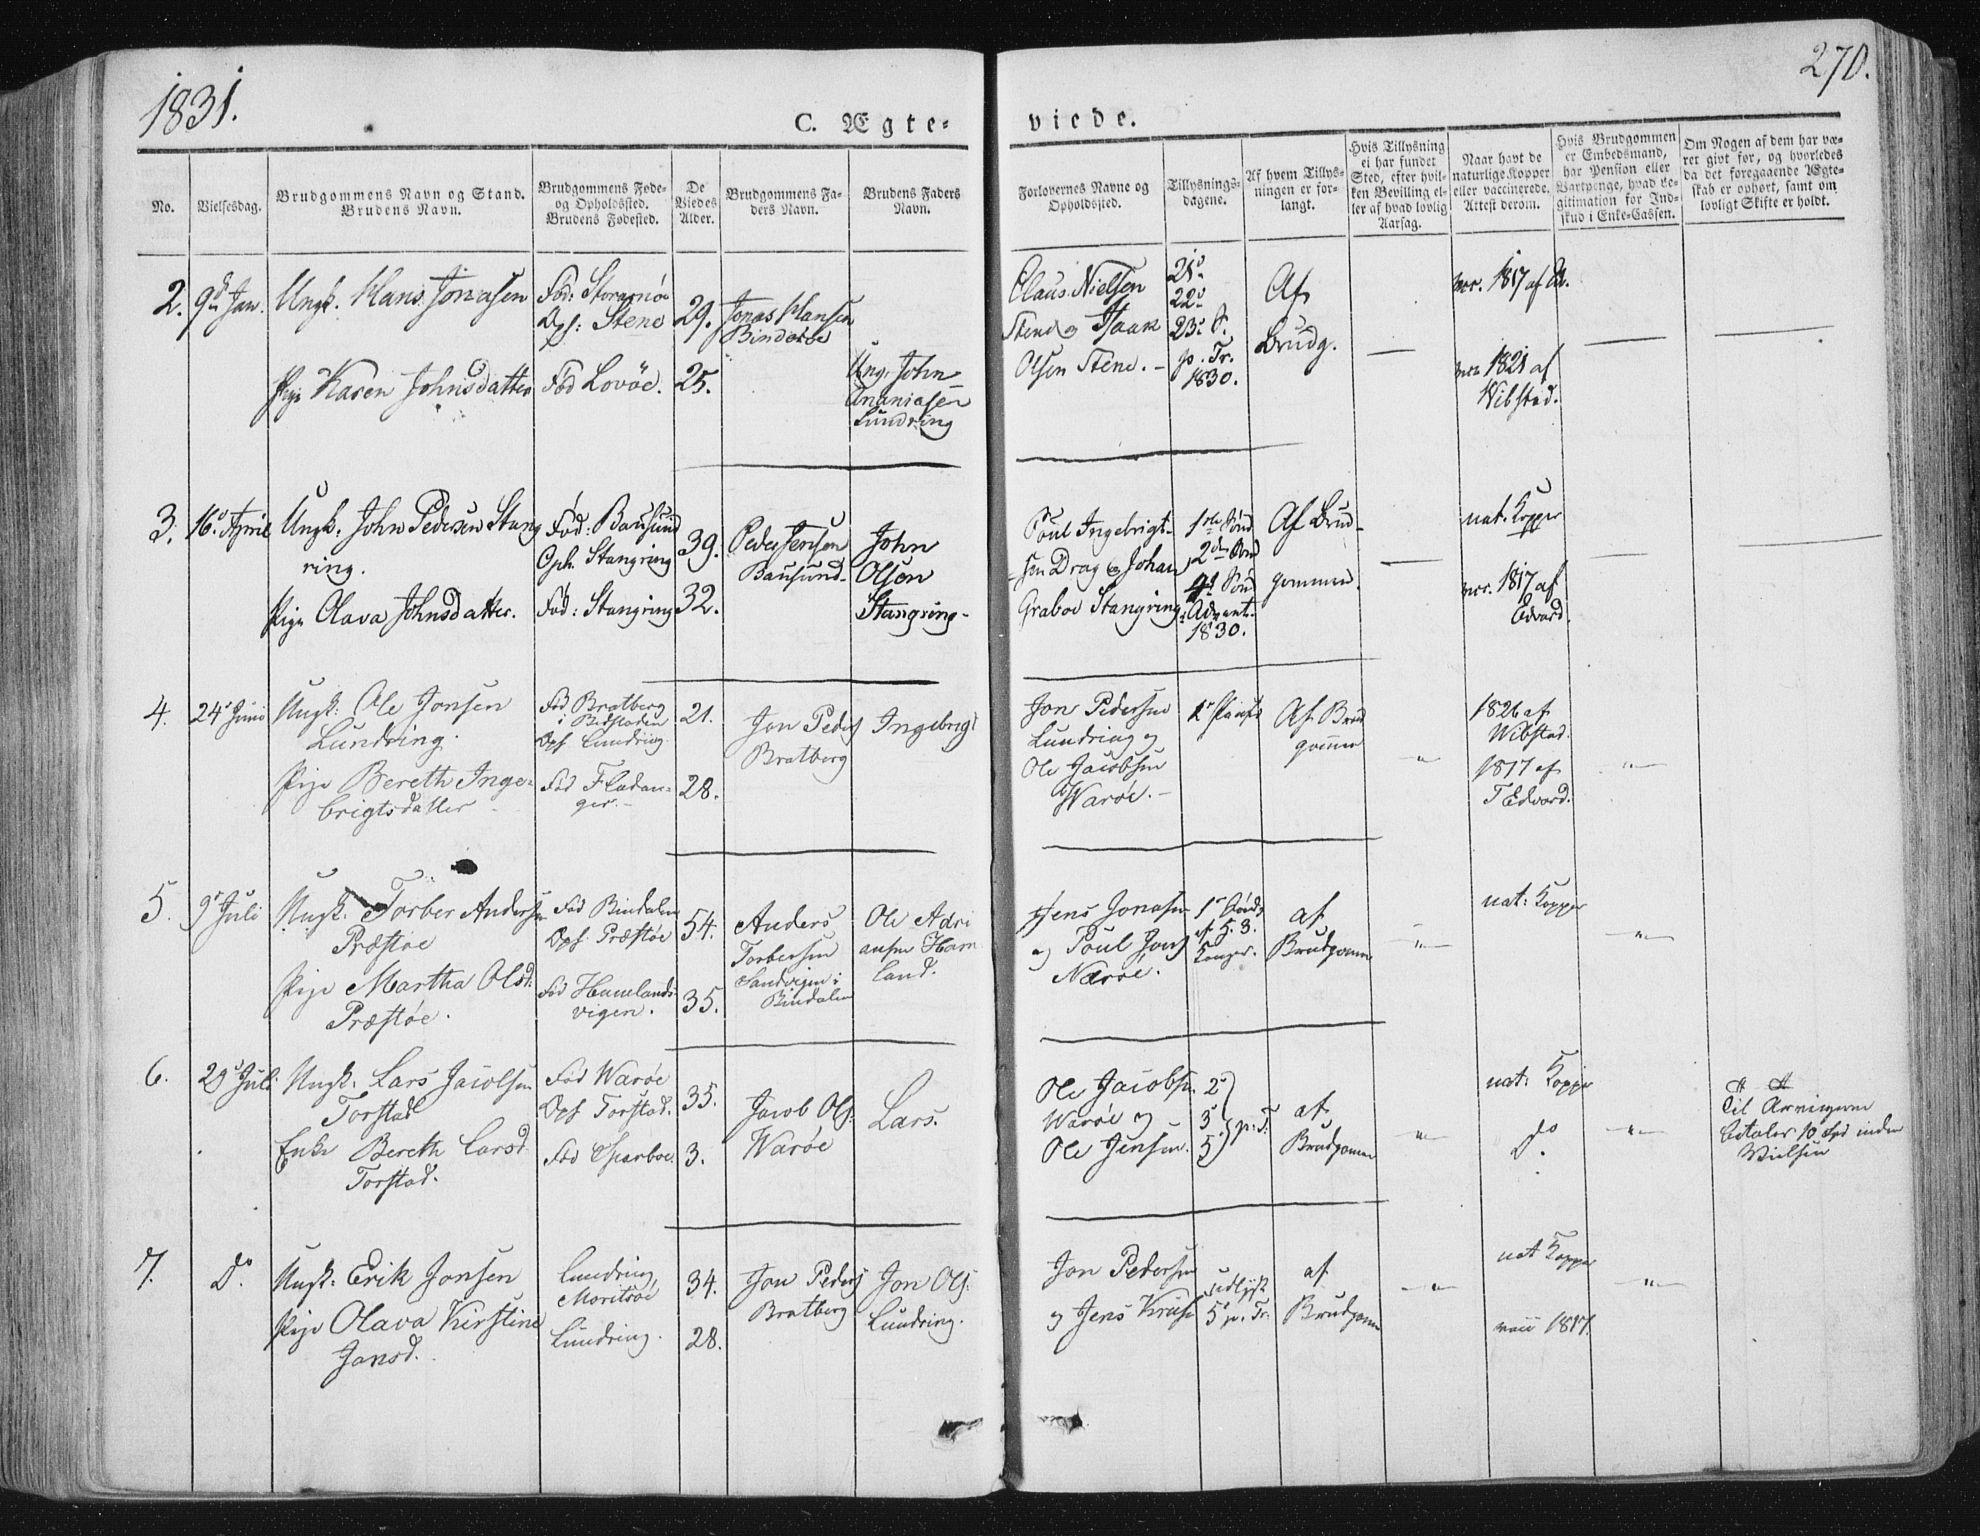 1831.
270.
C. Ægte- viede.
No.
Vielsesdag.
Brudgommens Navn og Stand.
Brudens Navn.
Brudgommens Føde-
og Opholdssted.
Brudens Fødested.
De
Viedes
Alder.
Brudgommens Fa-
ders Navn.
Brudens Faders
Navn.
Forlovernes Navne og
Opholdssted.
Tillysnings-
dagene.
Af hvem Tillys-
ningen er for-
langt.
Hvis Tillysning
ei har fundet
Sted, efter hvil-
ken Bevilling el-
ler af hvad lovlig
Aarsag.
Naar havt de
naturlige Kopper
eller vaccinerede.
Attest derom.
Hvis Brudgommen
er Embedsmand,
har Pension eller
Vartpenge, hvad Le-
gitimation for Ind-
skud i Enke-Cassen.
Om Nogen af dem har væ-
ret givt før, og hvorledes
da det foregaaende Ægte-
skab er ophørt, samt om
lovligt Skifte er holdt.
2. 9d Jan.
Ungk. Hans Jonasen
Pige Karen Johnsdatter
Fød:
Oph: Stene
Fød Lovöe.
29.
25.
Jonas Hansen
Binderöe
Ung. John
Ananiasen
Lundring
Claus Nielsen
Stene og Isaak
Olsen Stene.
21d
22d
23d S.
p. Tr.
1830.
Af
Brudg.
vac. 1817 af Ed.
vac 1821 af
Wibstad.
3. 16d April
Ungk. John Pedersen Stang
ring.
Pige Olava Johnsdatter.
Fød: Bausund
Oph. Stangring
Fød: Stangring
39.
32.
Peder Jensen
Bausund
John
Olsen
Stangring
Poul Ingebrigt-
sen Drag og Johan
Graboe Stangring
1ste Sønd
2den Sønd
4d Sønd
Advent.
1830.
Af Brud-
gommen.
nat. Kopper
vac. 1817 af
Edvard.
4. 24d Juni
Ungk: Ole Jonsen
Lundring.
Pige Bereth Inge-
brigtsdatter
Fød Bratberg
i Bidstaden
Oph. Lundring
Fød Fladan-
ger.
21.
28.
Jon Peders
Bratberg
Ingebrigt
Jon Pedersen
Lundring og
Ole Jacobsen
Waröe.
Af Brud
gommen
1826 af
Wibstad.
1817 af
T Edvard.
5. 9d Juli
Ungk: Torber Andersen
Præstöe
Pige Martha Olsd:
Præstöe.
Fød Bindalen
Oph: Præstöe
Fød Hamlands-
vigen.
54.
35.
Anders
Torbersen
Sandvigen i
Bindalen
Ole Adri
ansen Ham
land.
Jens Jonasen
og Poul Jons
Næröe.
af
Brudgommen
nat: Kopper
6. 29d Juli
Ungk: Lars Jacobsen
Torstad
Enke Bereth Larsd
Torstad.
Fød Waröe
Oph Torstad.
Fød Sparboe
35.
3.
Jacob Ols.
Waröe
Lars.
Ole Jacobsen
Waröe og
Ole Jensen.
2d
3d
5d
p. T.
af
Brudgommen
nat: Kopper
Do
Til Arvingerne
betaler 10 Spd inden
Vielsen
7. Do
Ungk: Erik Jonsen
Pige Olava Kirstine
Jonsd.
Lundring,
Moritsöe
Lundring.
34.
28.
Jon Peders
Bratberg
Jon Ols.
Lundring.
Jon Pedersen
og Jens Kruse
udlyst
5d p. Tr.
af
Brudgommen
nat Kopper
vacc 1817.